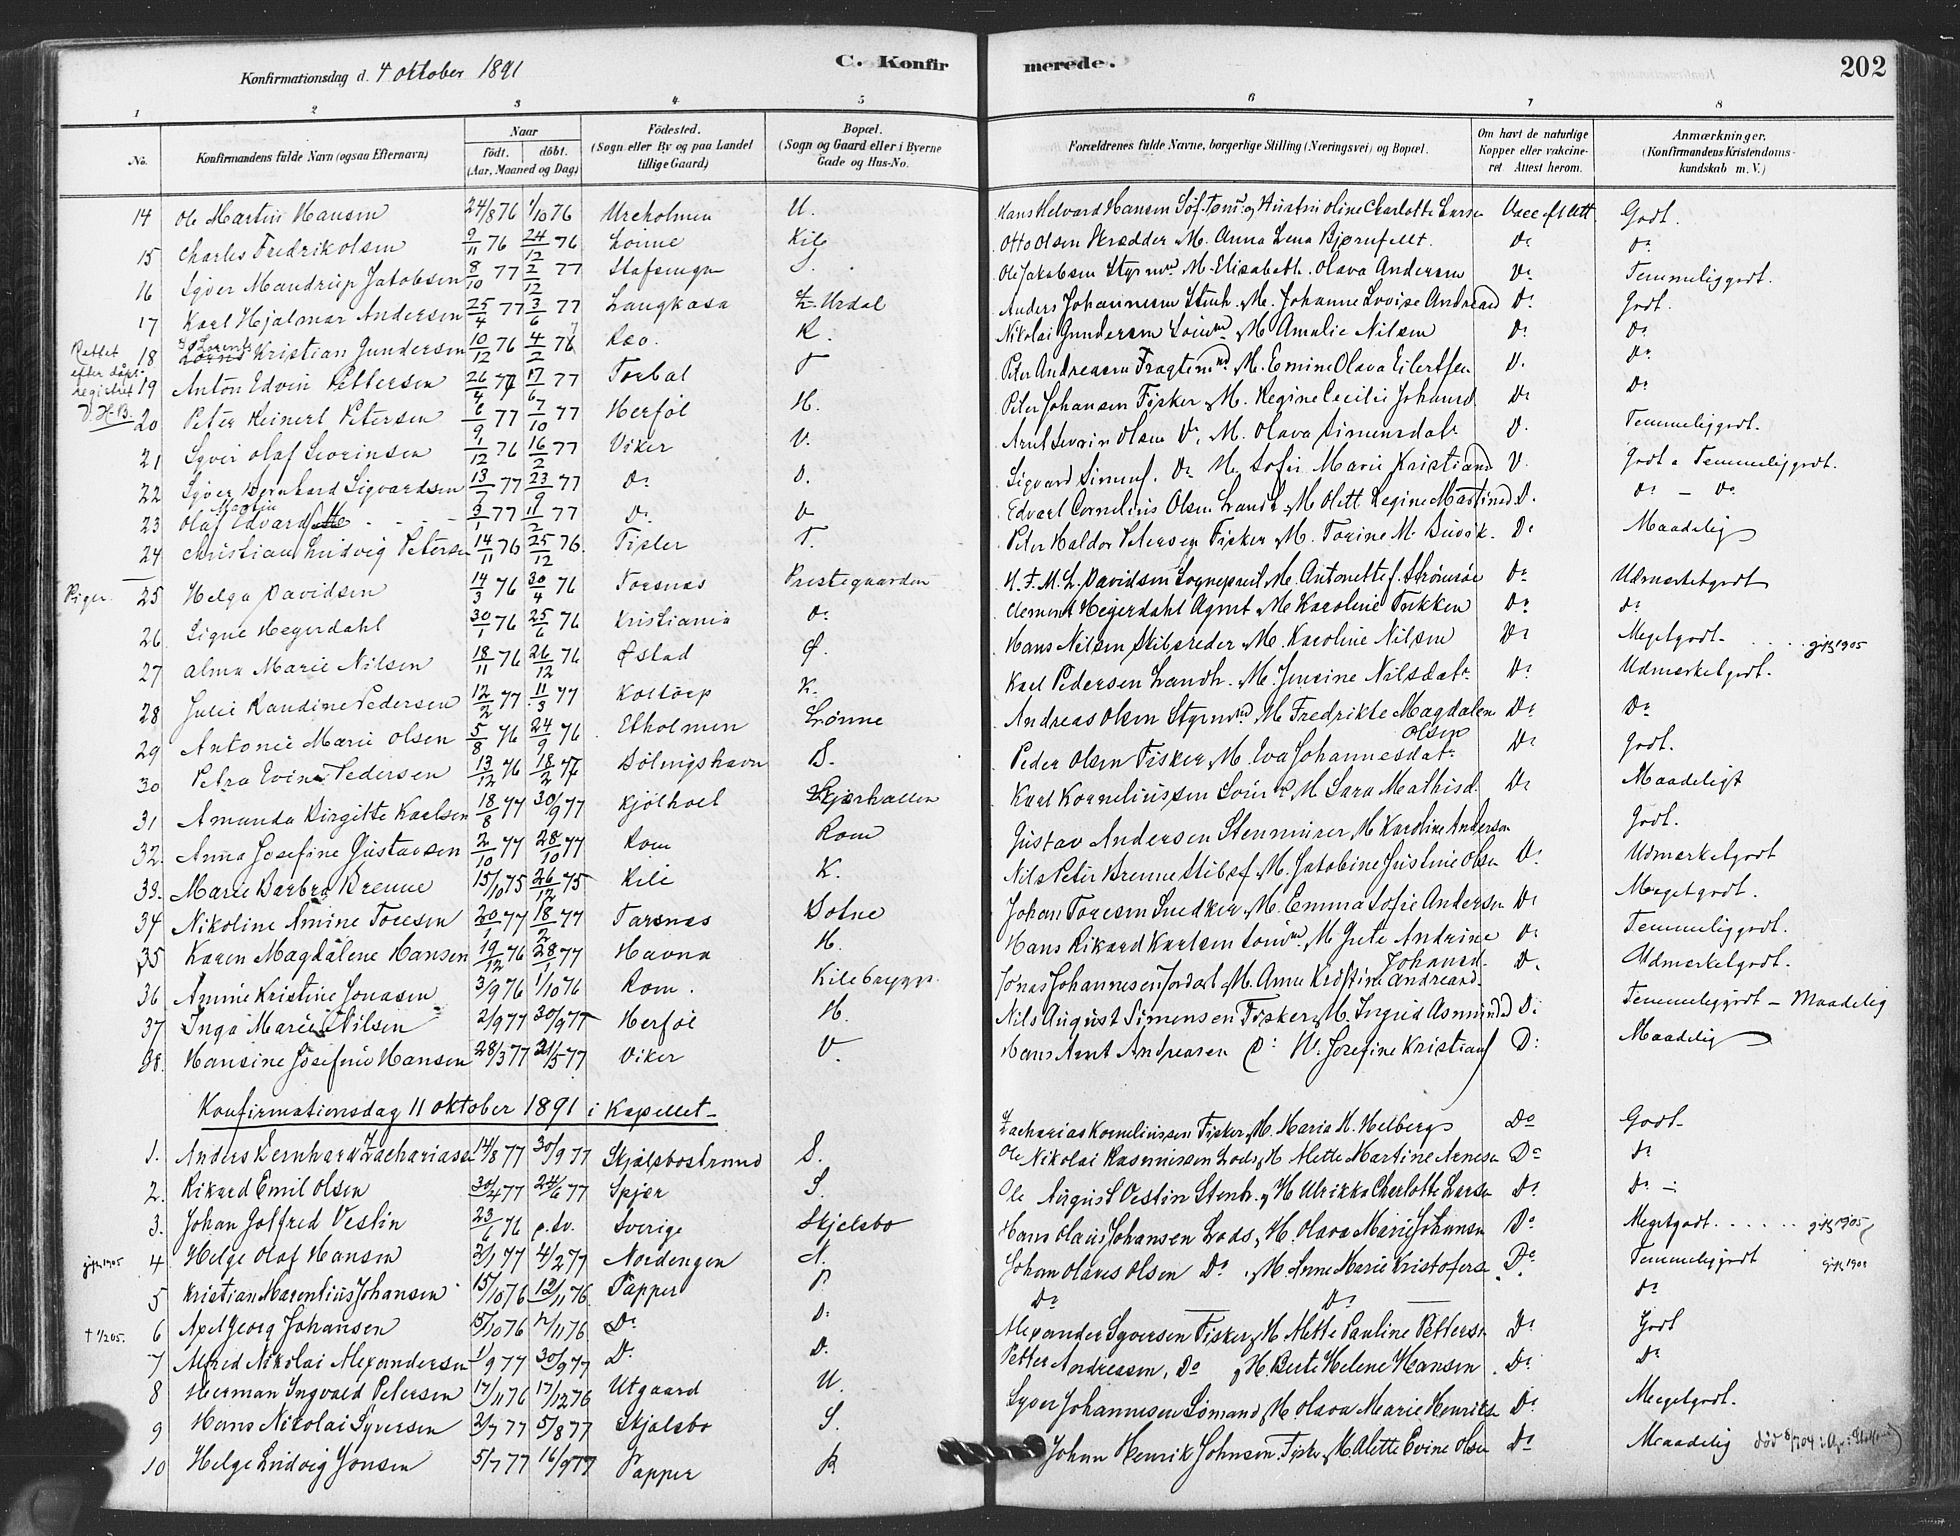 Konfirmationsdag d. 4 oktober 1891
C. Konfirmerede.
202
1 2 3 4 5 6 7 8
No.
Konfirmandens fulde Navn (ogsaa Efternavn)
Naar
födt. döbt.
(Aar, Maaned og Dag)
Födested.
(Sogn eller By og paa Landet
tillige Gaard)
Bopæl.
(Sogn og Gaard eller i Byerne
Gade og Hus-No.
Forældrenes fulde Navne, borgerlige Stilling (Næringsvei) og Bopæl.
Om havt de naturlige
Kopper eller vakcine-
ret Attest herom.
Anmærkninger.
(Konfirmandens Kristendoms-
kundskab m. V.)
14 Ole Martin Hansen 24/8 76 1/10 76 Ureholmen U. Hans Helvard Hansen Charlotte Godt.
15 Charles Fredrik Olsen 9/11 76 24/12 76 Lönne Otto Olsen Skrædder M. Anna Lena Bjørnfeldt. Do Do
16 Syver Mandrup Jakobsen 8/10 77 2/12 77 Ole Jakobsen Styrmd M. Elisabeth Olava Andersen Do Temmeliggodt.
17 Karl Hjalmar Andersen 25/4 77 3/6 77 Langkasa L. Urdal Anders Johannesen Stenh. M. Johanne Lovise Andread Do Godt.
Rettet
efter döbs-
registret
18 Lorents Kristian Gundersen 10/12 76 4/2 Rao. R. Nikolai Gundersen M Amalie Nilsen Do Do
19 Anton Edvin Pettersen 26/4 77 17/6 77 Torbal T Peter Andreasen Fragtemd M. Emine Olava Eilertsen D. Do
20 Peter Reinert Petersen 6/9 77 7/10 77 Herföl H. Peter Johansen Fisker M. Regine Cecilie Johansd Do Do
21 Syver Olaf Sevrinsen 9/12 76 16/2 77 Viker V. Arnt Sevrin Olsen Do M. Olava Simensdatr D. Temmeliggodt.
22 Syver Bernhard Sigvardsen 13/7 77 23/9 77 Do D. Sigvard Simens. Do M. Sofie Marie Kristiansd D. Godt a Temmeliggodt.
23 Olaf Edvard Martin 3/1 77 11/2 77 Do D Edvart Cornelius Olsen Landh M Olett Regine Martinsd D. Do – Do
24 Christian Ludvig Petersen 14/11 76 25/12 76. Fisler T. Peter Haldor Petersen Fisker M. Torine M. Buvik. Do Maadelig
Piger. 25 Helga Davidsen 14/3 76 30/4 76 Torsnes Prestegaarden H. F. M. L. Davidsen Sogneprest M. Antonette f. Strömsöe Do Udmerketgodt
26 Signe Hegerdahl 30/1 76 25/6 76 Kristiania Do Clement Hegerdahl Agent M Karoline Do Do
27 Alma Marie Nilsen 18/11 76 26/12 76 Østad Ø. Hans Nilsen Skibsreder M. Karoline Nilsen Do Megetgodt. gift 1905
28 Julie Randine Pedersen 12/2 77 11/3 77 Koltorp K. Karl Pedersen Landh. M. Jensine Nilsdatr Do Udmerketgodt.
29 Antonie Marie Olsen 5/8 76 24/9 76 Etholmen Lönne Andreas Olsen Styrmnd M Fredrikke Magdalen Olsen Do Do
30 Petra Evine Pedersen 13/12 76 18/2 77 Bölingshavn B. Peder Olsen Fisker M. Eva Johannesdatr Do Godt.
31 Amanda Birgitte Karlsen 18/8 77 30/9 77 Kjölhol Skjærhallen Karl Kornelinssen M Sara Mathisd. Do Maadeligt
32. Anna Josefine Gustavsen 2/10 77 28/10 77 Rom Rom Gustav Andersen Stenmurer M Karoline Andersen Godt.
33. Marie Barbra Brenne 15/10 75 26/12 75 Kile K. Nils Peter Brenne Skibsf. M. Jakobine Justine Olsen D. Udmerketgodt
34 Nikoline Amine Toresen 20/1 77 18/2 77 Torsnes Botne Johan Toresen Snedker M. Emma Sofie Andersen Do Megetgodt.
35 Karen Magdalene Hansen 19/12 76 28/1 77 Havna H. Hans Rikard Karlsen M Gute Andrine Johansd. D. Temmeliggodt.
36 Amine Kristine Jonasen 3/9 76 1/10 76 Rom. Kilebrygge Jonas Johannesen M. Anne Kristine Andreasd. D. Udmerketgodt.
37 Inga Marie Nilsen 2/9 77 30/9 77 Herföl H. Nils August Simensen Fisker M. Ingrid Asmundsd D. Temmeliggodt – Maadelig
38. Hansine Josefine Hansen 28/3 77 21/5 77 Viker V. Hans Arnt Andreasen D: M. Josefine Kristians D: Maadelig
Konfirmationsdag 11 oktober 1891 i Kapellet
1. Anders Bernhard Zachariassen 14/8 77 30/9 77 Skjelsbostrand S. Zacharias Kornelinssen Fisker, M. Maria H. Helberg Do Godt
2. Rikard Emil Olsen 30/4 77 24/6 77 Spjær S. Ole Nikolai Rasmussen Lods, M Mette Martine Arnesen Do Do
3. Johan Golfred Vestin 23/6 76 p. Sv. Sverige Skjelsbo Ole August Vestin Stenh. M Ulrikka Charlotte Larsen Do Do
gift 1905 4 Helge Olaf Hansen 2/1 77 4/2 77 Nordengen N. Hans Olaus Johansen Lods, M. Olava Marie Johansen Do Megetgodt. gift 1905
5 Kristian Marentius Johansen 15/10 76 12/11 76. Papper P Johan Olaves Olsen Do M. Anne Marie Kristofersen Do Temmeliggodt
† 1/205. 6 Axel Georg Johansen 15/10 76 12/11 76 Do D. Do Do Do
7 Alfred Nikolai Alexandersen 1/9 77 30/9 77 Do D. Alexander Syversen Fisker, M Mette Pauline Petters Do Godt
8 Herman Ingvald Petersen 17/11 76 17/12 76 Utgaard U. Petter Andreasen, Do M. Berte Helene Hansen Do Do
9 Hans Nikolai Syversen 2/7 77 5/8 77 Skjelsbo S. Syver Johannesen Sömand, M. Olava Marie Henriksen Do Megetgodt.
10 Helge Ludvig Jonsen 5/7 77 16/9 77 Papper P. Johan Henrik Johnsen. Fisker M. Alette Evine Olsen Do Maadelig död